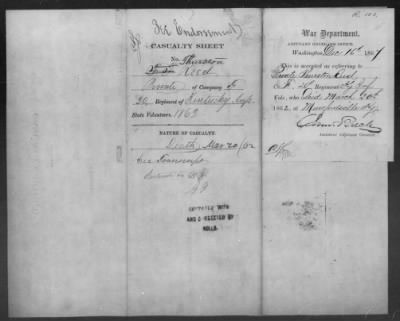 See Endorsement
CASUALTY SHEET
No. Thurston
Reed
Private of Company
20 Regiment of Kentucky Inf.
State Volunteers. 1862
NATURE OF CASUALTY.
Death, Mar 20/62
See
COMPARED WITH
ROLLS.
War Department,
ADJUTANT GENERAL'S OFFICE,
Washington, Dec 16th 1867
This is accepted as referring to
Private Thurston Reed
Co. 20 Regiment Ky Inf
Vols., who died March 20th
1862, at Munfordville Ky
Assistant Adjutant General.